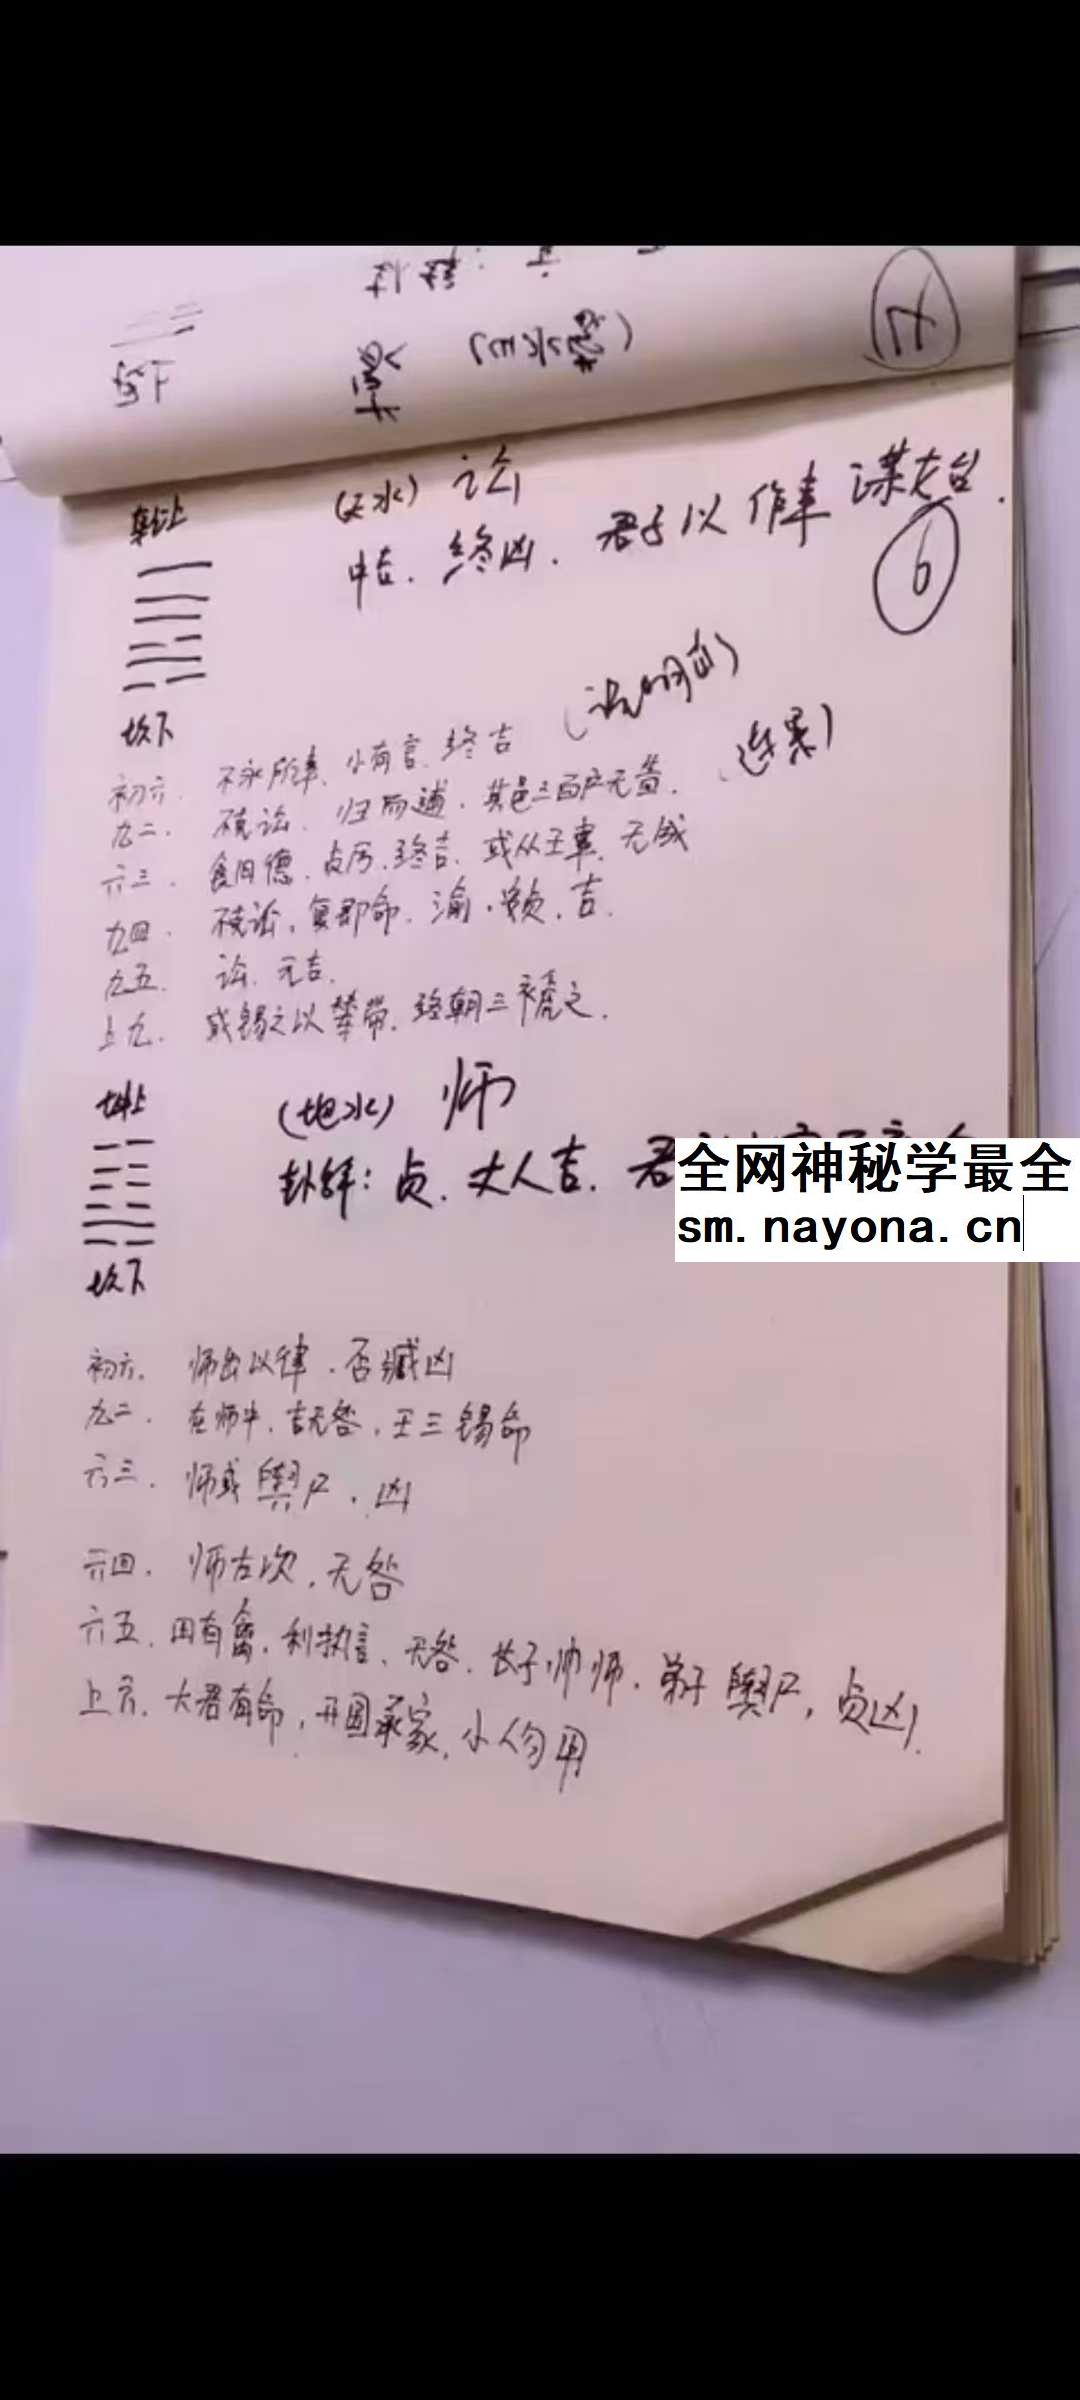 乾上
(天水) 讼
中吉. 终凶. 君子以作事谋
6
坎下
初六. 不永所事、小有言. 终吉
九二. 不克讼、归而逋. 其邑三百户无眚. (连累)
六三. 食旧德. 贞厉. 终吉. 或从王事. 无成
九四. 不克讼. 复即命. 渝. 安贞. 吉.
九五. 讼. 元吉.
上九. 或锡之以鞶带. 终朝三褫之.
坤上
(地水) 师
卦辞: 贞. 丈人吉. 君
全网神秘学最全
sm.nayona.cn
坎下
初六. 师出以律. 否臧凶
九二. 在师中. 吉无咎. 王三锡命
六三. 师或舆尸. 凶
六四. 师左次. 无咎
六五. 田有禽. 利执言、无咎. 长子帅师. 弟子舆尸, 贞凶.
上六. 大君有命, 开国承家. 小人勿用